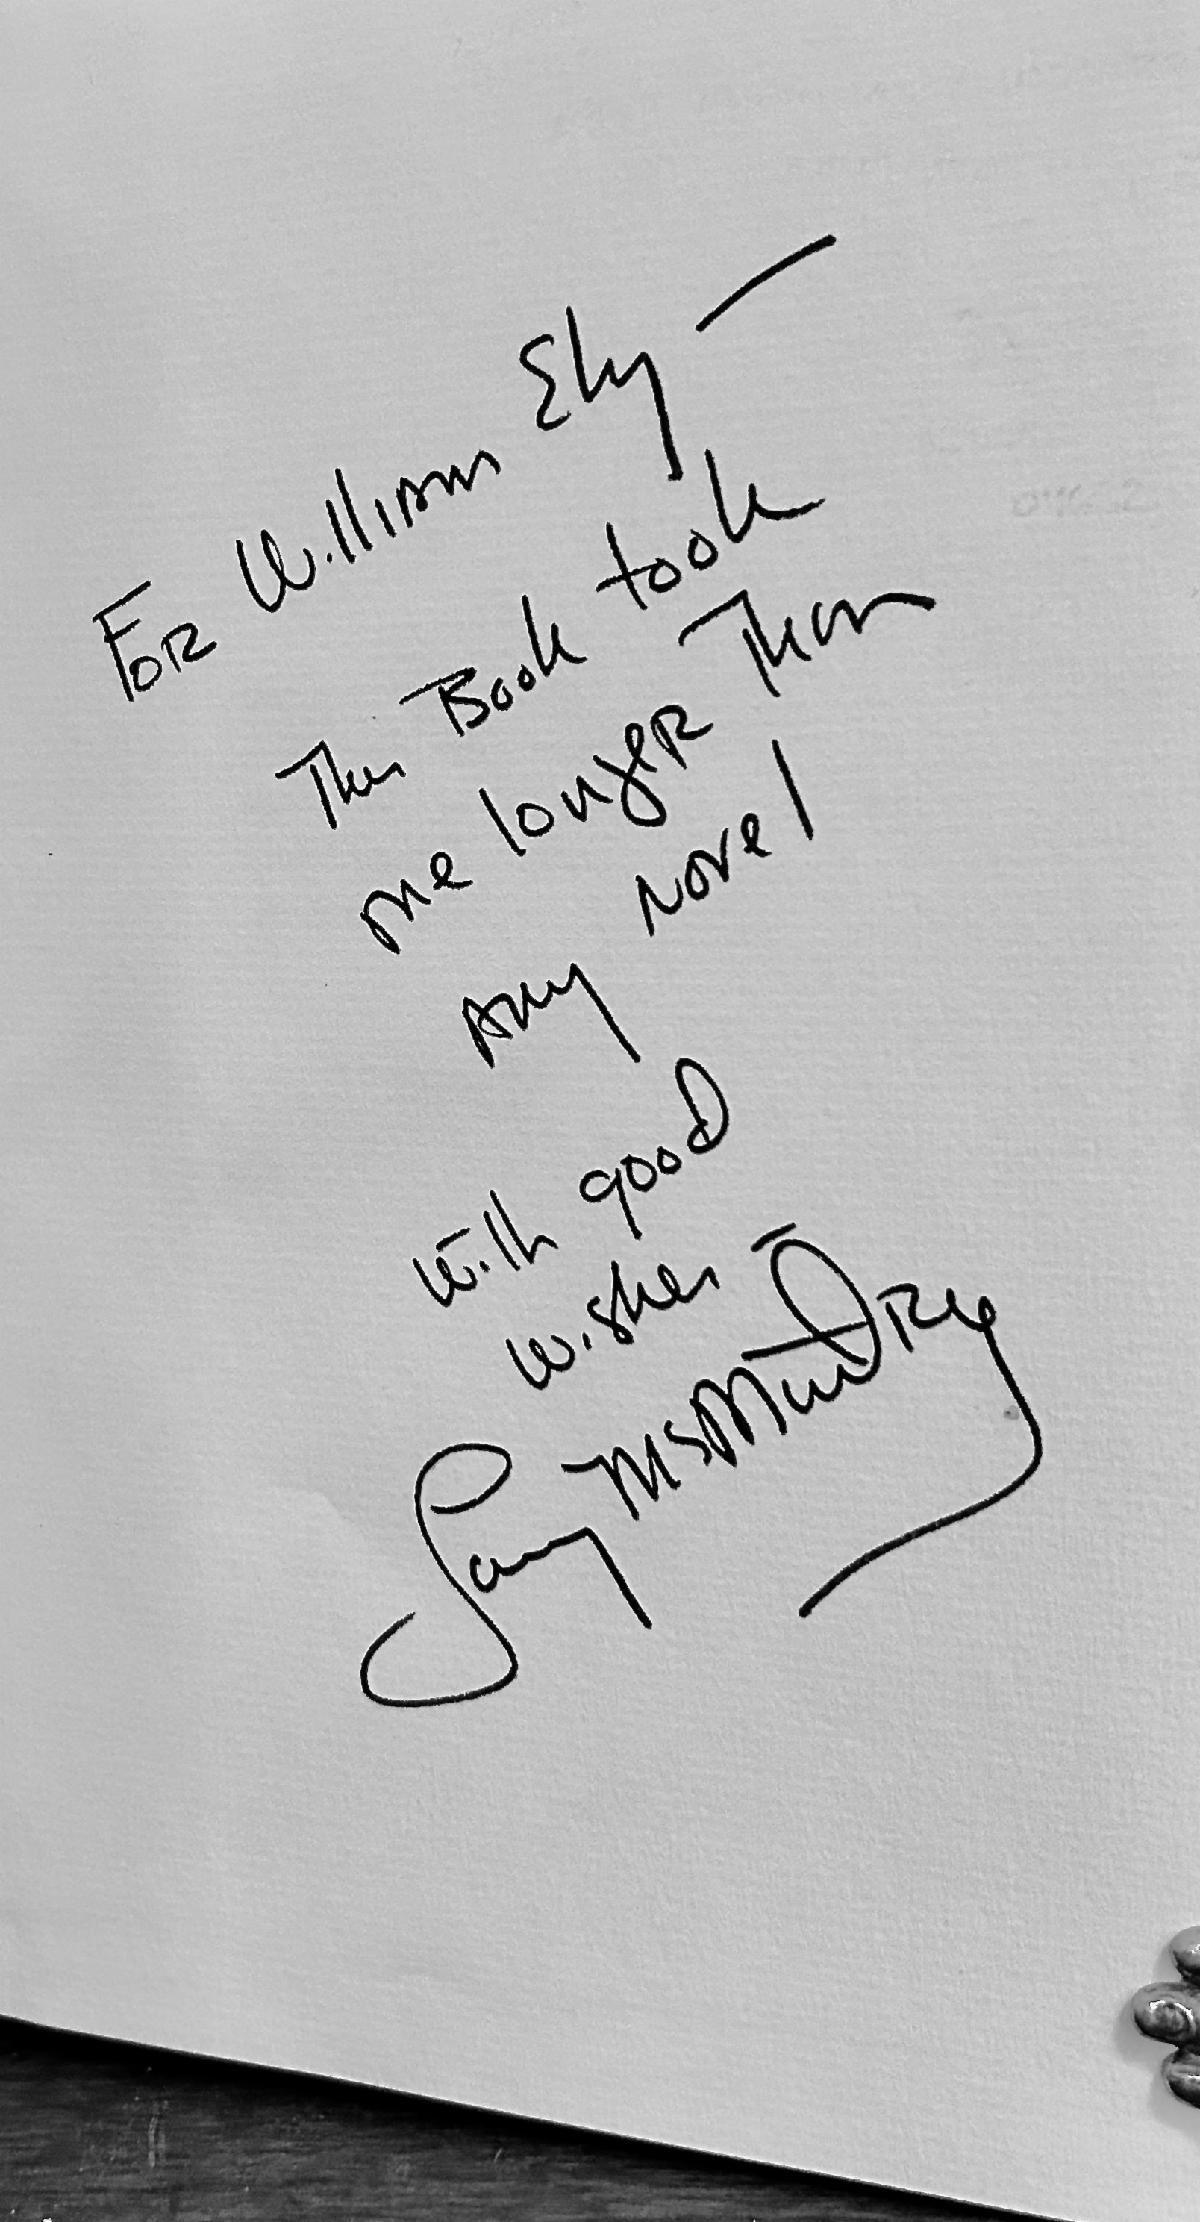 For William Ely —
This Book took
me longer Than
Any novel
with good
wishes —
Larry McMurtry